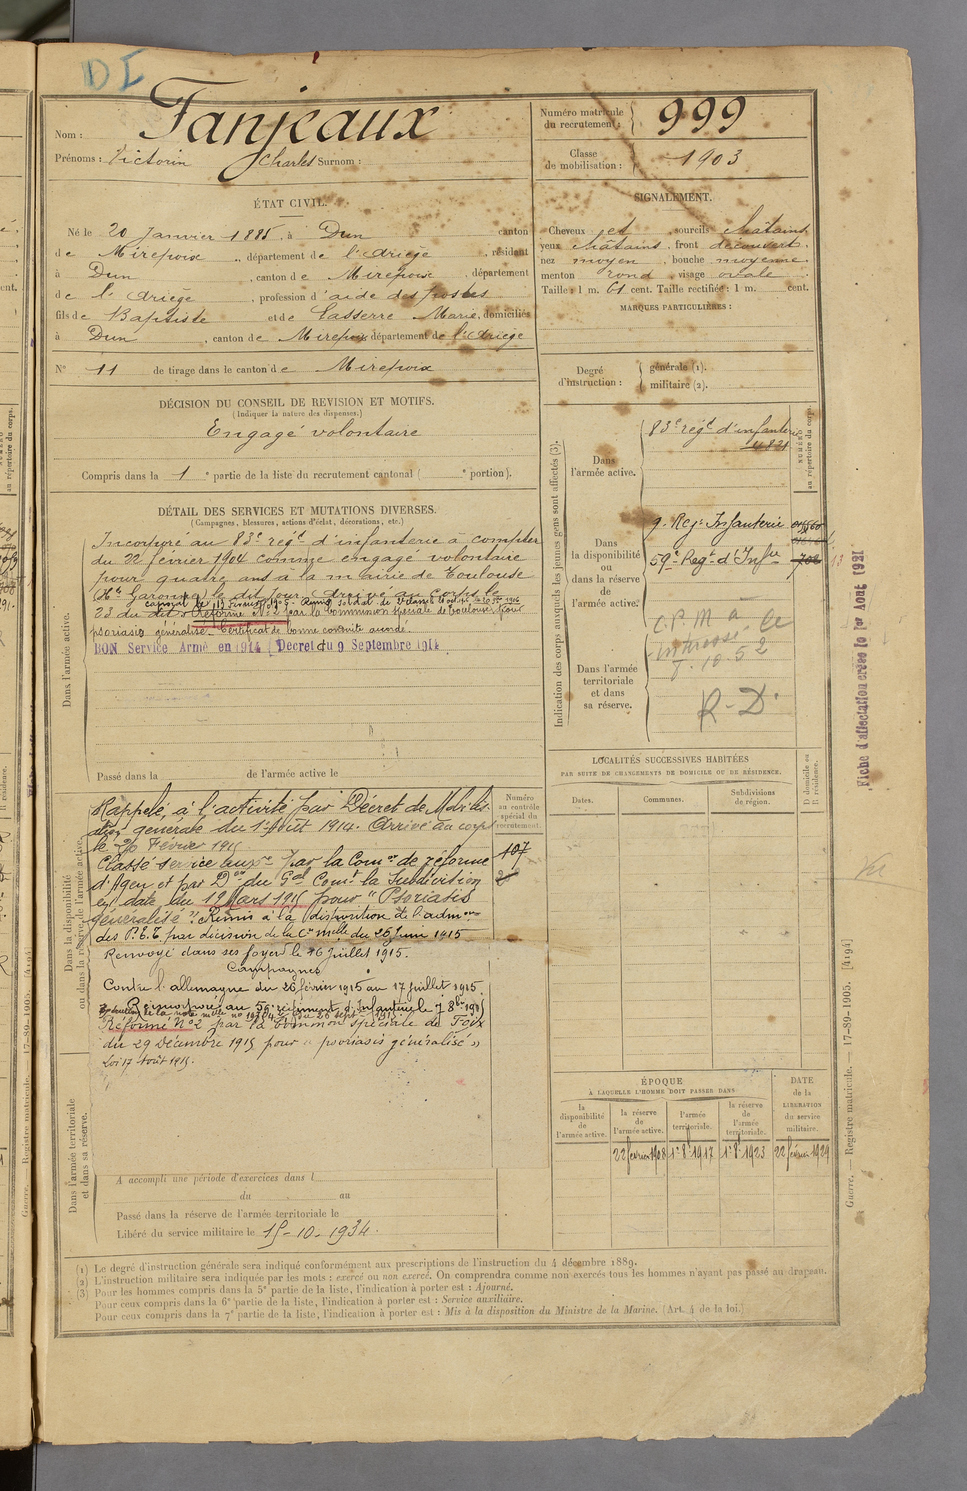 DI
Nom : Fanjeaux
Prénoms : Victorin Charles Surnom :
Numéro matricule du recrutement : 999
Classe de mobilisation : 1903
ÉTAT CIVIL.
Né le 20 Janvier 1885, à Dun canton
de Mirepoix, département de l'Ariège, résidant
à Dun, canton de Mirepoix, département
de l'Ariège, profession d'aide des postes
fils de Baptiste et de Lasserre Marie, domiciliés
à Dun, canton de Mirepoix département de l'Ariège
N° 11 de tirage dans le canton de Mirepoix
SIGNALEMENT.
Cheveux et sourcils châtains
yeux châtains, front découvert,
nez moyen, bouche moyenne
menton rond, visage ovale
Taille : 1 m. 61 cent. Taille rectifiée : 1 m. cent.
MARQUES PARTICULIÈRES :
Degré d'instruction : générale (1). militaire (2).
DÉCISION DU CONSEIL DE REVISION ET MOTIFS.
(Indiquer la nature des dispenses.)
Engagé volontaire
Compris dans la 1e partie de la liste du recrutement cantonal ( e portion).
DÉTAIL DES SERVICES ET MUTATIONS DIVERSES.
(Campagnes, blessures, actions d'éclat, décorations, etc.)
Dans l'armée active.
Incorporé au 83e régt d'infanterie à compter
du 22 février 1904 comme engagé volontaire
pour quatre ans à la mairie de Toulouse
(Hte Garonne) le dit jour. Arrivé au corps le
23 du dit. Réformé N° 2 par la Commission spéciale de Toulouse pour
psoriasis généralisé. Certificat de bonne conduite accordé.
BON Service Armé en 1914 (Décret du 9 Septembre 1914
Passé dans la de l'armée active le
Dans la disponibilité ou dans la réserve de l'armée active.
Rappelé à l'activité par Décret de Mobili-
sation générale du 1er Août 1914. Arrivé au corps
le 26 Février 1915
Classé service auxre par la Comon de réforme
d'Agen et par Don du Gal Comt la Subdivision
en date du 12 Mars 1915 pour "Psoriasis
généralisé". Remis à la disposition de l'admon
des P.E.T. par décision de la Con Melle du 26 Juin 1915
Renvoyé dans ses foyers le 16 Juillet 1915.
Campagnes
Contre l'allemagne du 26 février 1915 au 17 juillet 1915.
Réincorporé au 59 régiment d'Infanterie le 7 8bre 1915
Réformé N° 2 par la Common spéciale de Foix
du 29 Décembre 1915 pour "psoriasis généralisé"
Loi 17 Août 1915.
Numéro au contrôle spécial du recrutement.
107
Dans l'armée territoriale et dans sa réserve.
A accompli une période d'exercices dans l
du au
Passé dans la réserve de l'armée territoriale le
Libéré du service militaire le 15-10-1934.
Indication des corps auxquels les jeunes gens sont affectés (3).
NUMÉRO au répertoire du corps.
Dans l'armée active.
83e régt d'infanterie
Dans la disponibilité ou dans la réserve de l'armée active.
9e Regt Infanterie
59e Regt d'Infie 708
Dans l'armée territoriale et dans sa réserve.
R-D.
Fiche d'affectation créée le 1er Août 1921
LOCALITÉS SUCCESSIVES HABITÉES
PAR SUITE DE CHANGEMENTS DE DOMICILE OU DE RÉSIDENCE.
D domicile ou R résidence.
Dates. Communes. Subdivisions de région.
ÉPOQUE
À LAQUELLE L'HOMME DOIT PASSER DANS
DATE de la LIBÉRATION du service militaire.
la disponibilité de l'armée active. la réserve de l'armée active. l'armée territoriale. la réserve de l'armée territoriale.
22 février 1908 1er 8bre 1917 1er 8bre 1923 22 février 1929
Guerre. — Registre matricule. — 17-89-1905. [4194]
(1) Le degré d'instruction générale sera indiqué conformément aux prescriptions de l'instruction du 4 décembre 1889.
(2) L'instruction militaire sera indiquée par les mots : exercé ou non exercé. On comprendra comme non exercés tous les hommes n'ayant pas passé au drapeau.
(3) Pour les hommes compris dans la 5e partie de la liste, l'indication à porter est : Ajourné.
Pour ceux compris dans la 6e partie de la liste, l'indication à porter est : Service auxiliaire.
Pour ceux compris dans la 7e partie de la liste, l'indication à porter est : Mis à la disposition du Ministre de la Marine. (Art. 4 de la loi.)